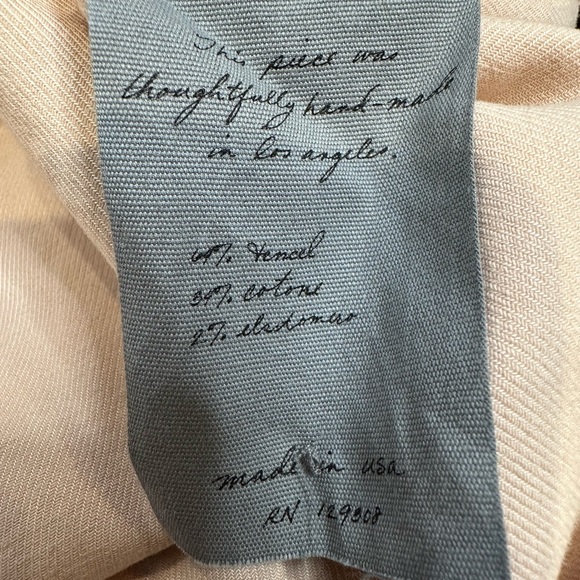 This piece was
thoughtfully hand-made
in los angeles.
64% tencel
34% cotone
2% elastomero
made in usa
RN 129308